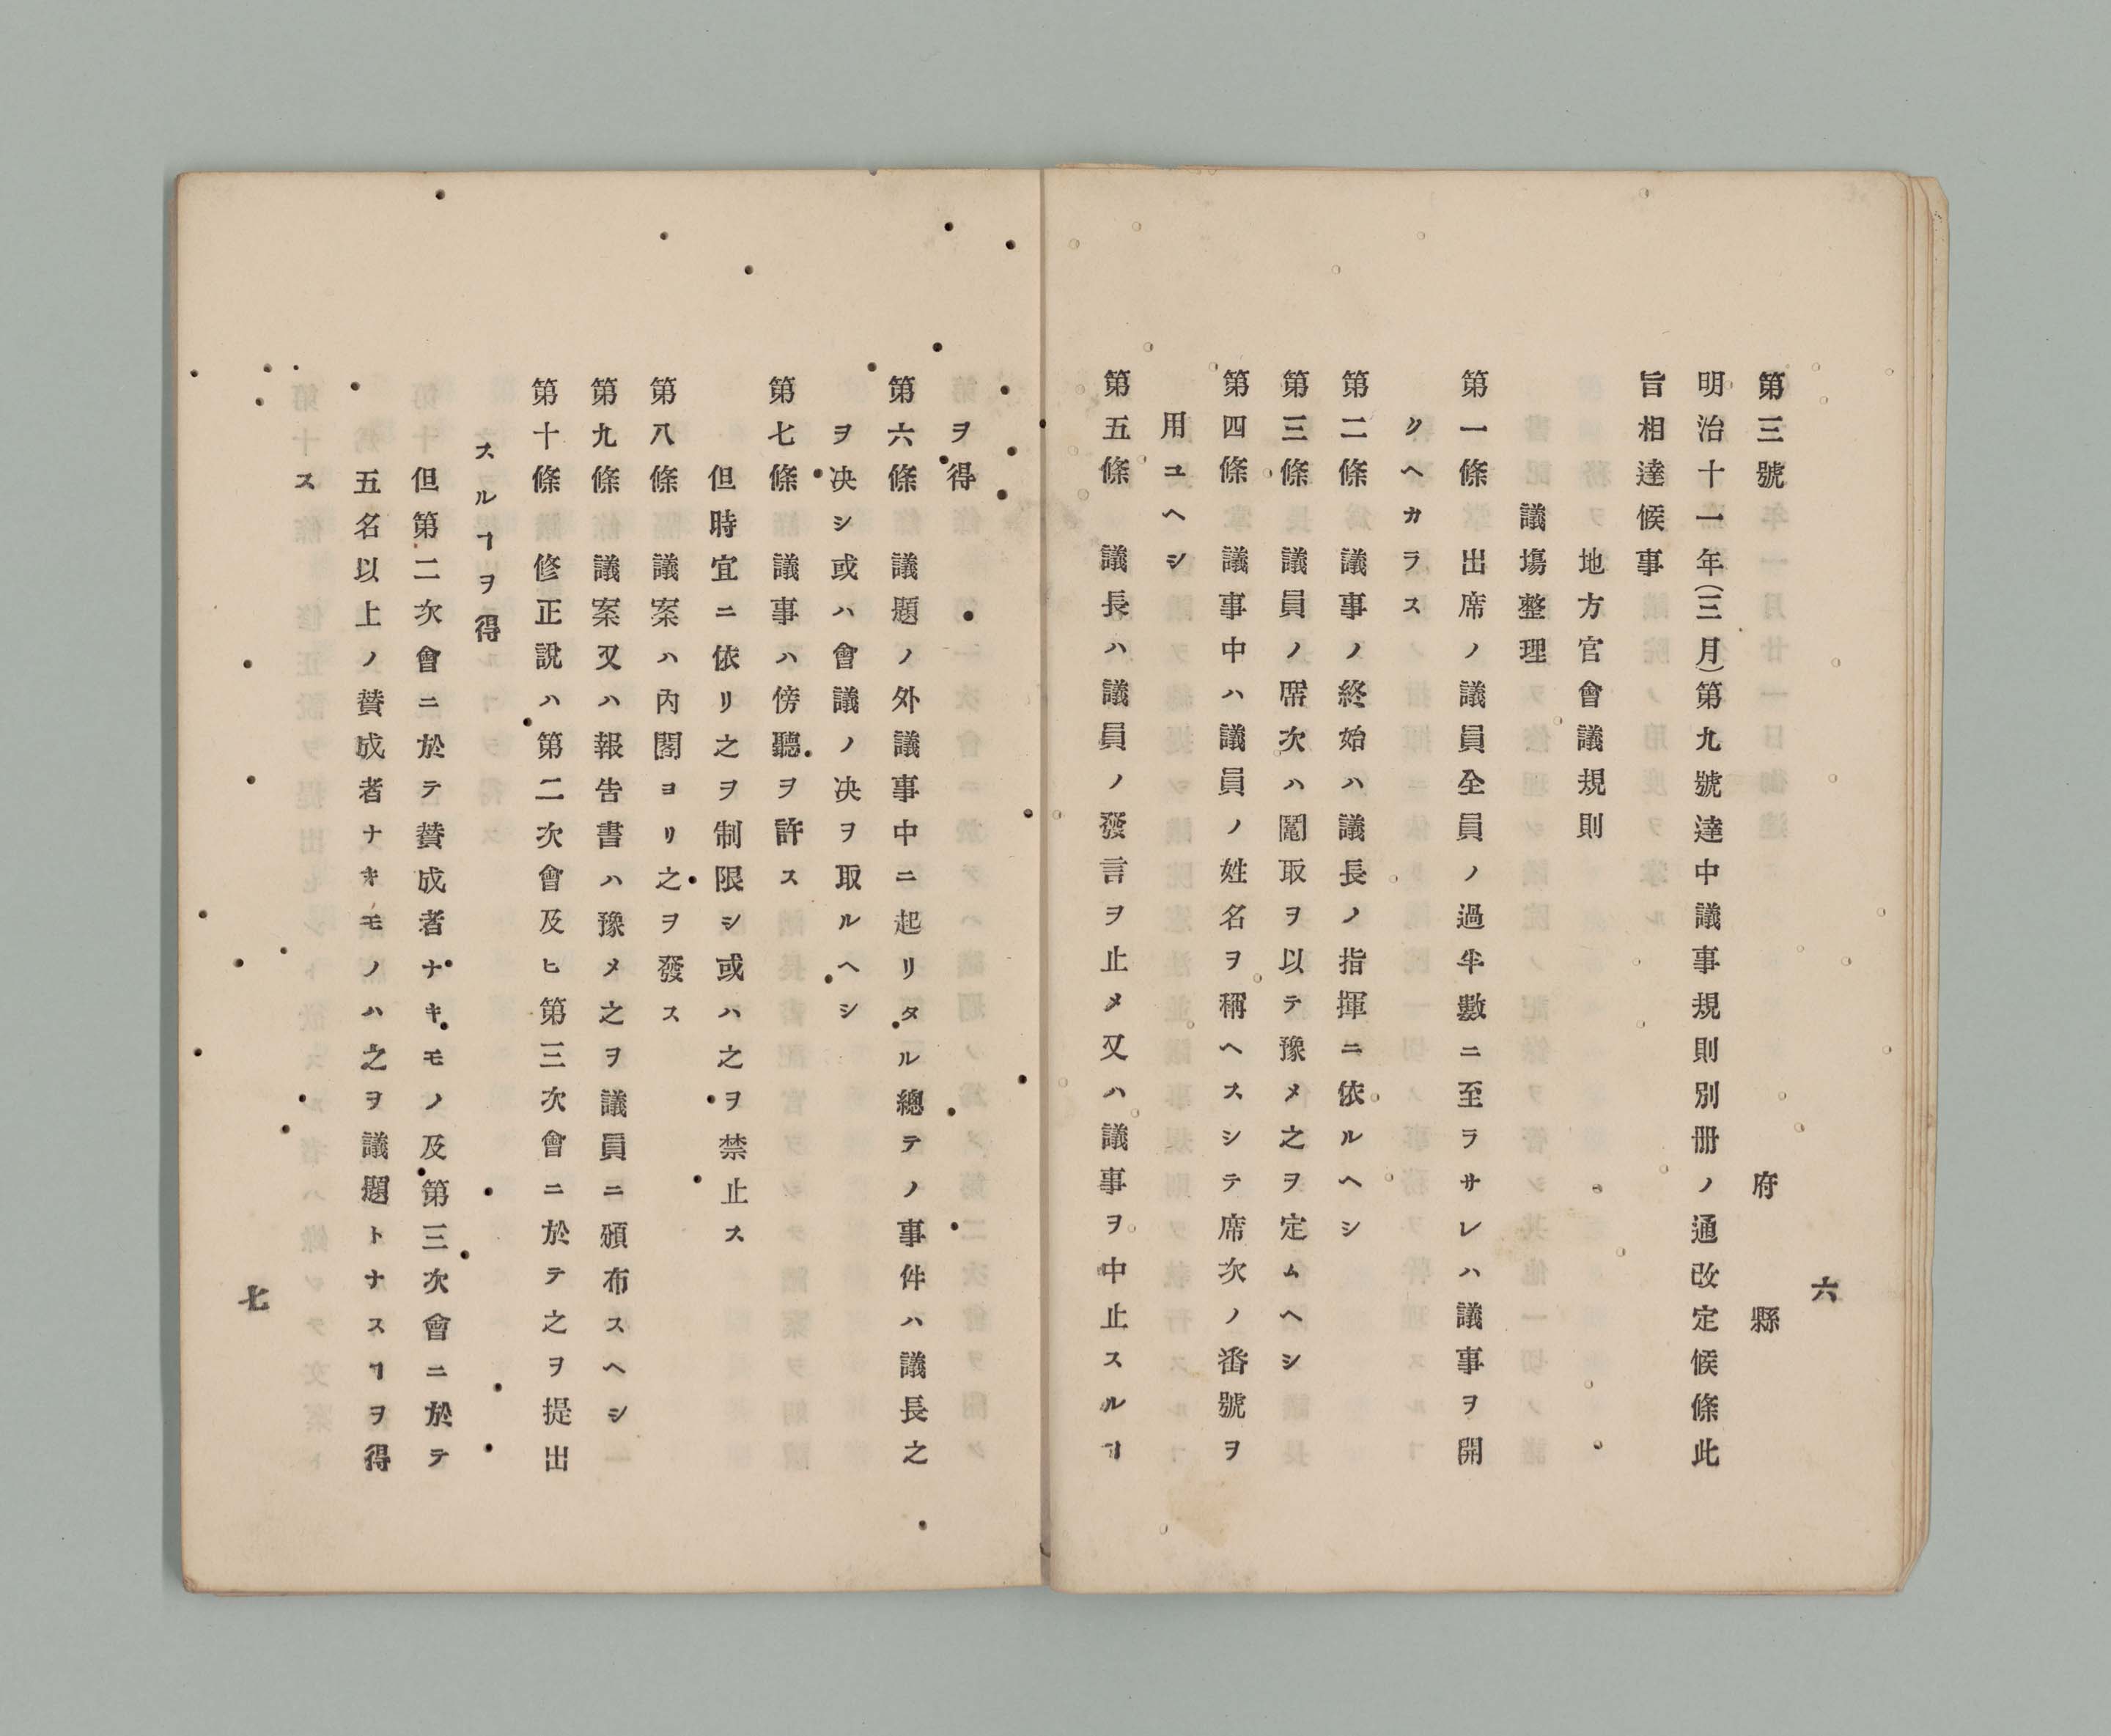 六
第三號　府　縣
明治十一年(三月)第九號達中議事規則別册ノ通改定候條此
旨相達候事
地方官會議規則
議塲整理
第一條　出席ノ議員全員ノ過半數ニ至ラサレハ議事ヲ開
クヘカラス
第二條　議事ノ終始ハ議長ノ指揮ニ依ルヘシ
第三條　議員ノ席次ハ鬮取ヲ以テ豫メ之ヲ定ムヘシ
第四條　議事中ハ議員ノ姓名ヲ稱ヘスシテ席次ノ番號ヲ
用ユヘシ
第五條　議長ハ議員ノ發言ヲ止メ又ハ議事ヲ中止スルヿ
ヲ得
第六條　議題ノ外議事中ニ起リタル總テノ事件ハ議長之
ヲ决シ或ハ會議ノ决ヲ取ルヘシ
第七條　議事ハ傍聽ヲ許ス
但時宜ニ依リ之ヲ制限シ或ハ之ヲ禁止ス
第八條　議案ハ內閣ヨリ之ヲ發ス
第九條　議案又ハ報告書ハ豫メ之ヲ議員ニ頒布スヘシ
第十條　修正說ハ第二次會及ヒ第三次會ニ於テ之ヲ提出
スルヿヲ得
但第二次會ニ於テ賛成者ナキモノ及第三次會ニ於テ
五名以上ノ賛成者ナキモノハ之ヲ議題トナスヿヲ得
ス
七